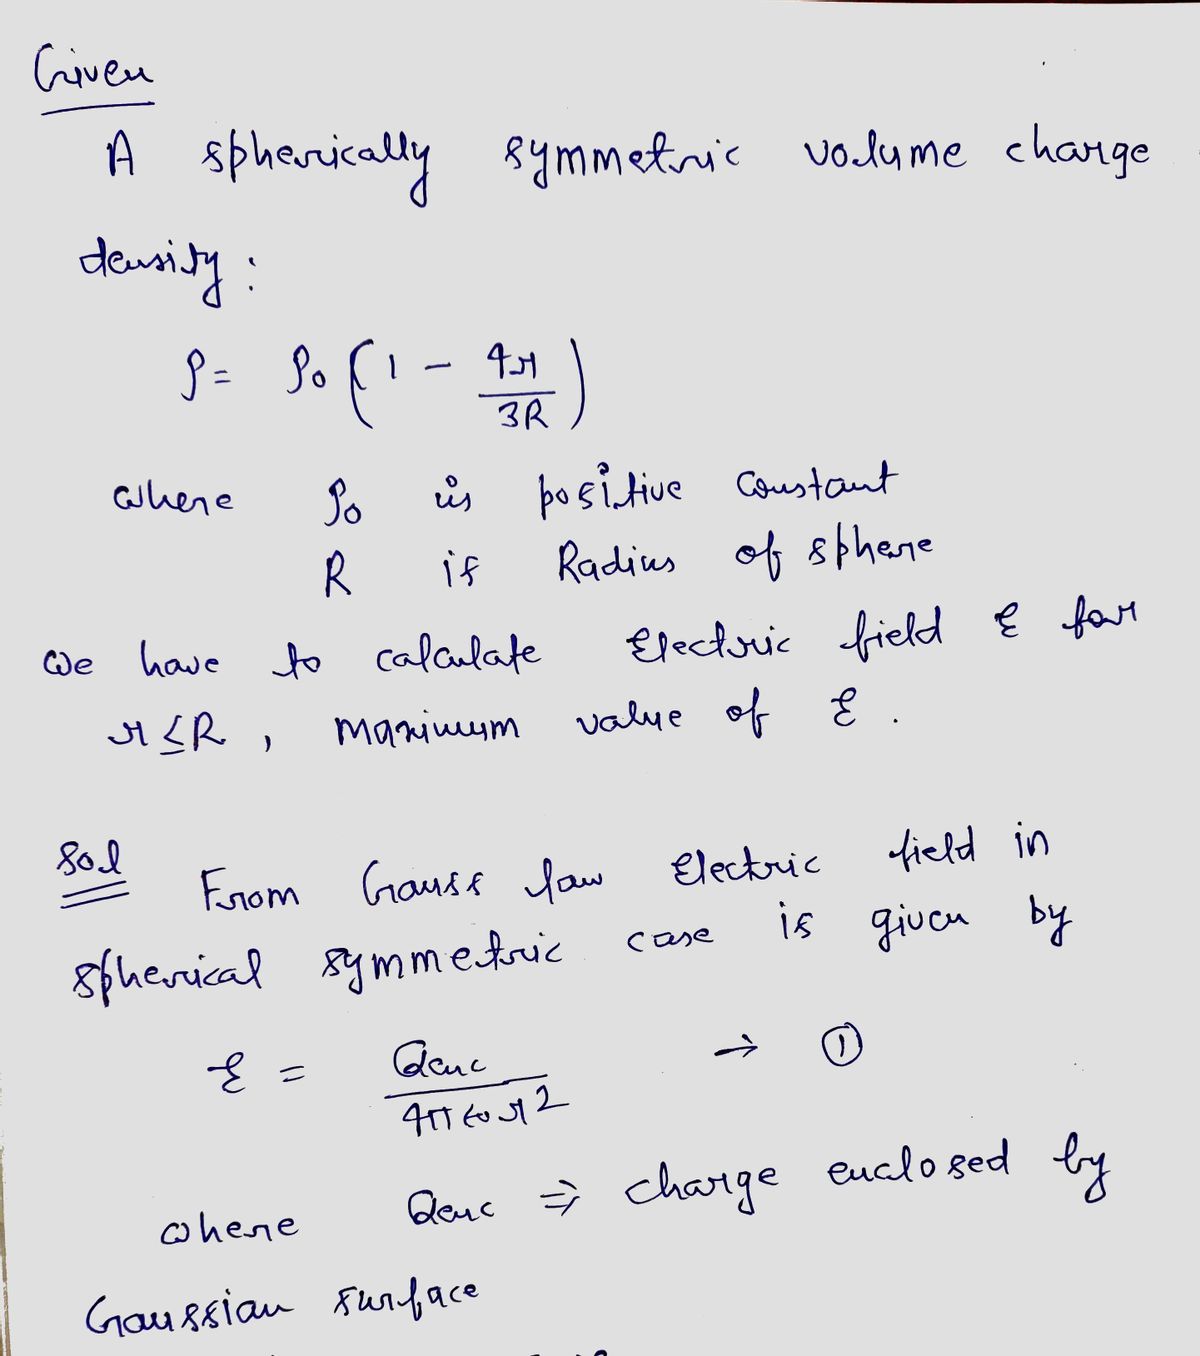 Given
A spherically symmetric volume charge
density :
ρ = ρ₀ ( 1 - 4r / 3R )
where ρ₀ is positive constant
R is Radius of sphere
we have to calculate Electric field E for
r ≤ R , maximum value of E .
Sol From Gauss law Electric field in
spherical symmetric case is given by
E = Qenc / 4π ε₀ r² → ①
where Qenc ⇒ charge enclosed by
Gaussian surface